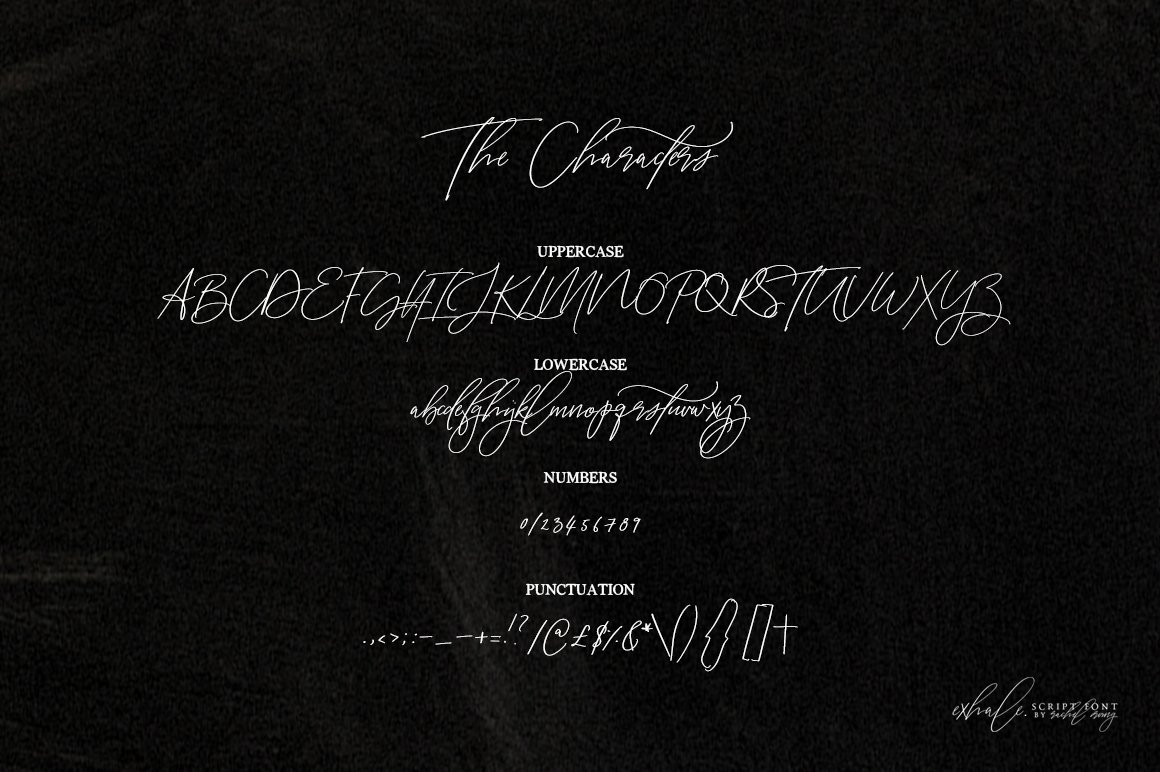 The Characters
UPPERCASE
ABCDEFGHIJKLMNOPQRSTUVWXYZ
LOWERCASE
abcdefghijklmnopqrstuvwxyz
NUMBERS
0123456789
PUNCTUATION
.,<>;:-_—+=.!?/@£$%&*\(){}[]†
exhale. SCRIPT FONT
BY rachel